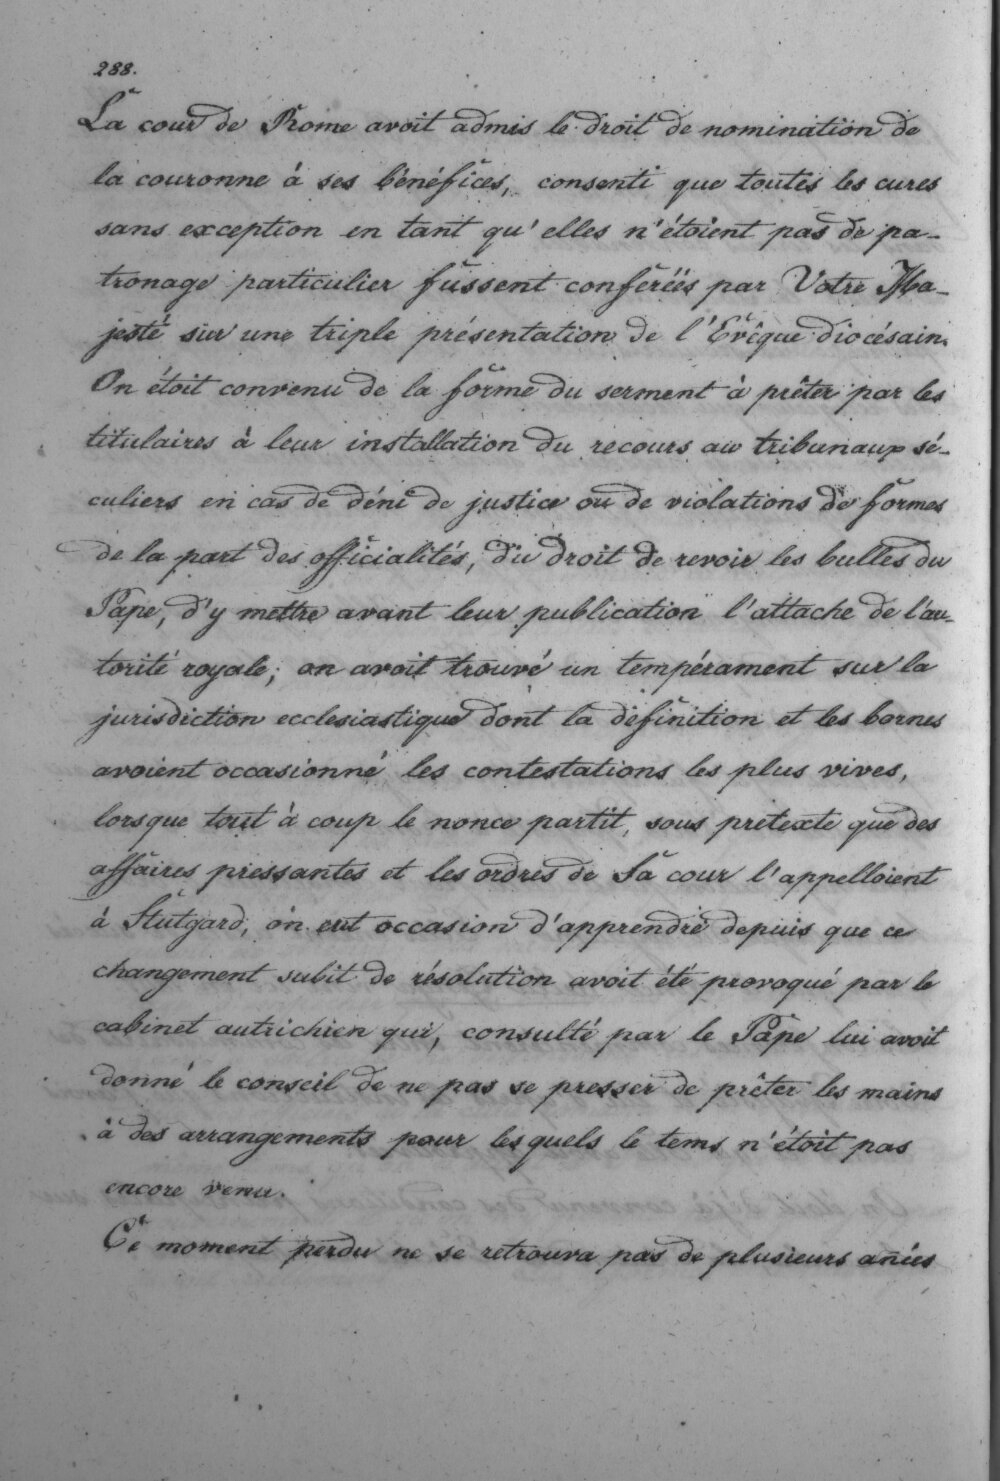 288.
La cour de Rome avoit admis le droit de nomination de
la couronne à ses bénéfices, consenti que toutes les cures
sans exception en tant qu'elles n'étoient pas de pa-
tronage particulier fussent conférées par Votre Ma-
jesté sur une triple présentation de l'Evêque diocésain.
On étoit convenu de la forme du serment à prêter par les
titulaires à leur installation du recours au tribunaux sé-
culiers en cas de déni de justice ou de violations de formes
de la part des officialités, du droit de revoir les bulles du
Pape, d'y mettre avant leur publication l'attache de l'au-
torité royale; on avoit trouvé un tempérament sur la
jurisdiction ecclesiastique dont la définition et les bornes
avoient occasionné les contestations les plus vives,
lorsque tout à coup le nonce partit, sous prétexte que des
affaires pressantes et les ordres de Sa cour l'appelloient
à Stutgard, on eut occasion d'apprendre depuis que ce
changement subit de résolution avoit été provoqué par le
cabinet autrichien qui, consulté par le Pape lui avoit
donné le conseil de ne pas se presser de prêter les mains
à des arrangements pour lesquels le tems n'étoit pas
encore venu.
Ce moment perdu ne se retrouva pas de plusieurs añées